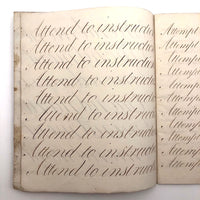 Attend to instruction
Attend to instruction
Attend to instruction
Attend to instruction
Attend to instruction
Attend to instruction
Attend to instruction
Attend to instruction
Attend to instruction
Attempt
Attempt
Attempt
Attempt
Attempt
Attempt
Attempt
Attempt
Attempt